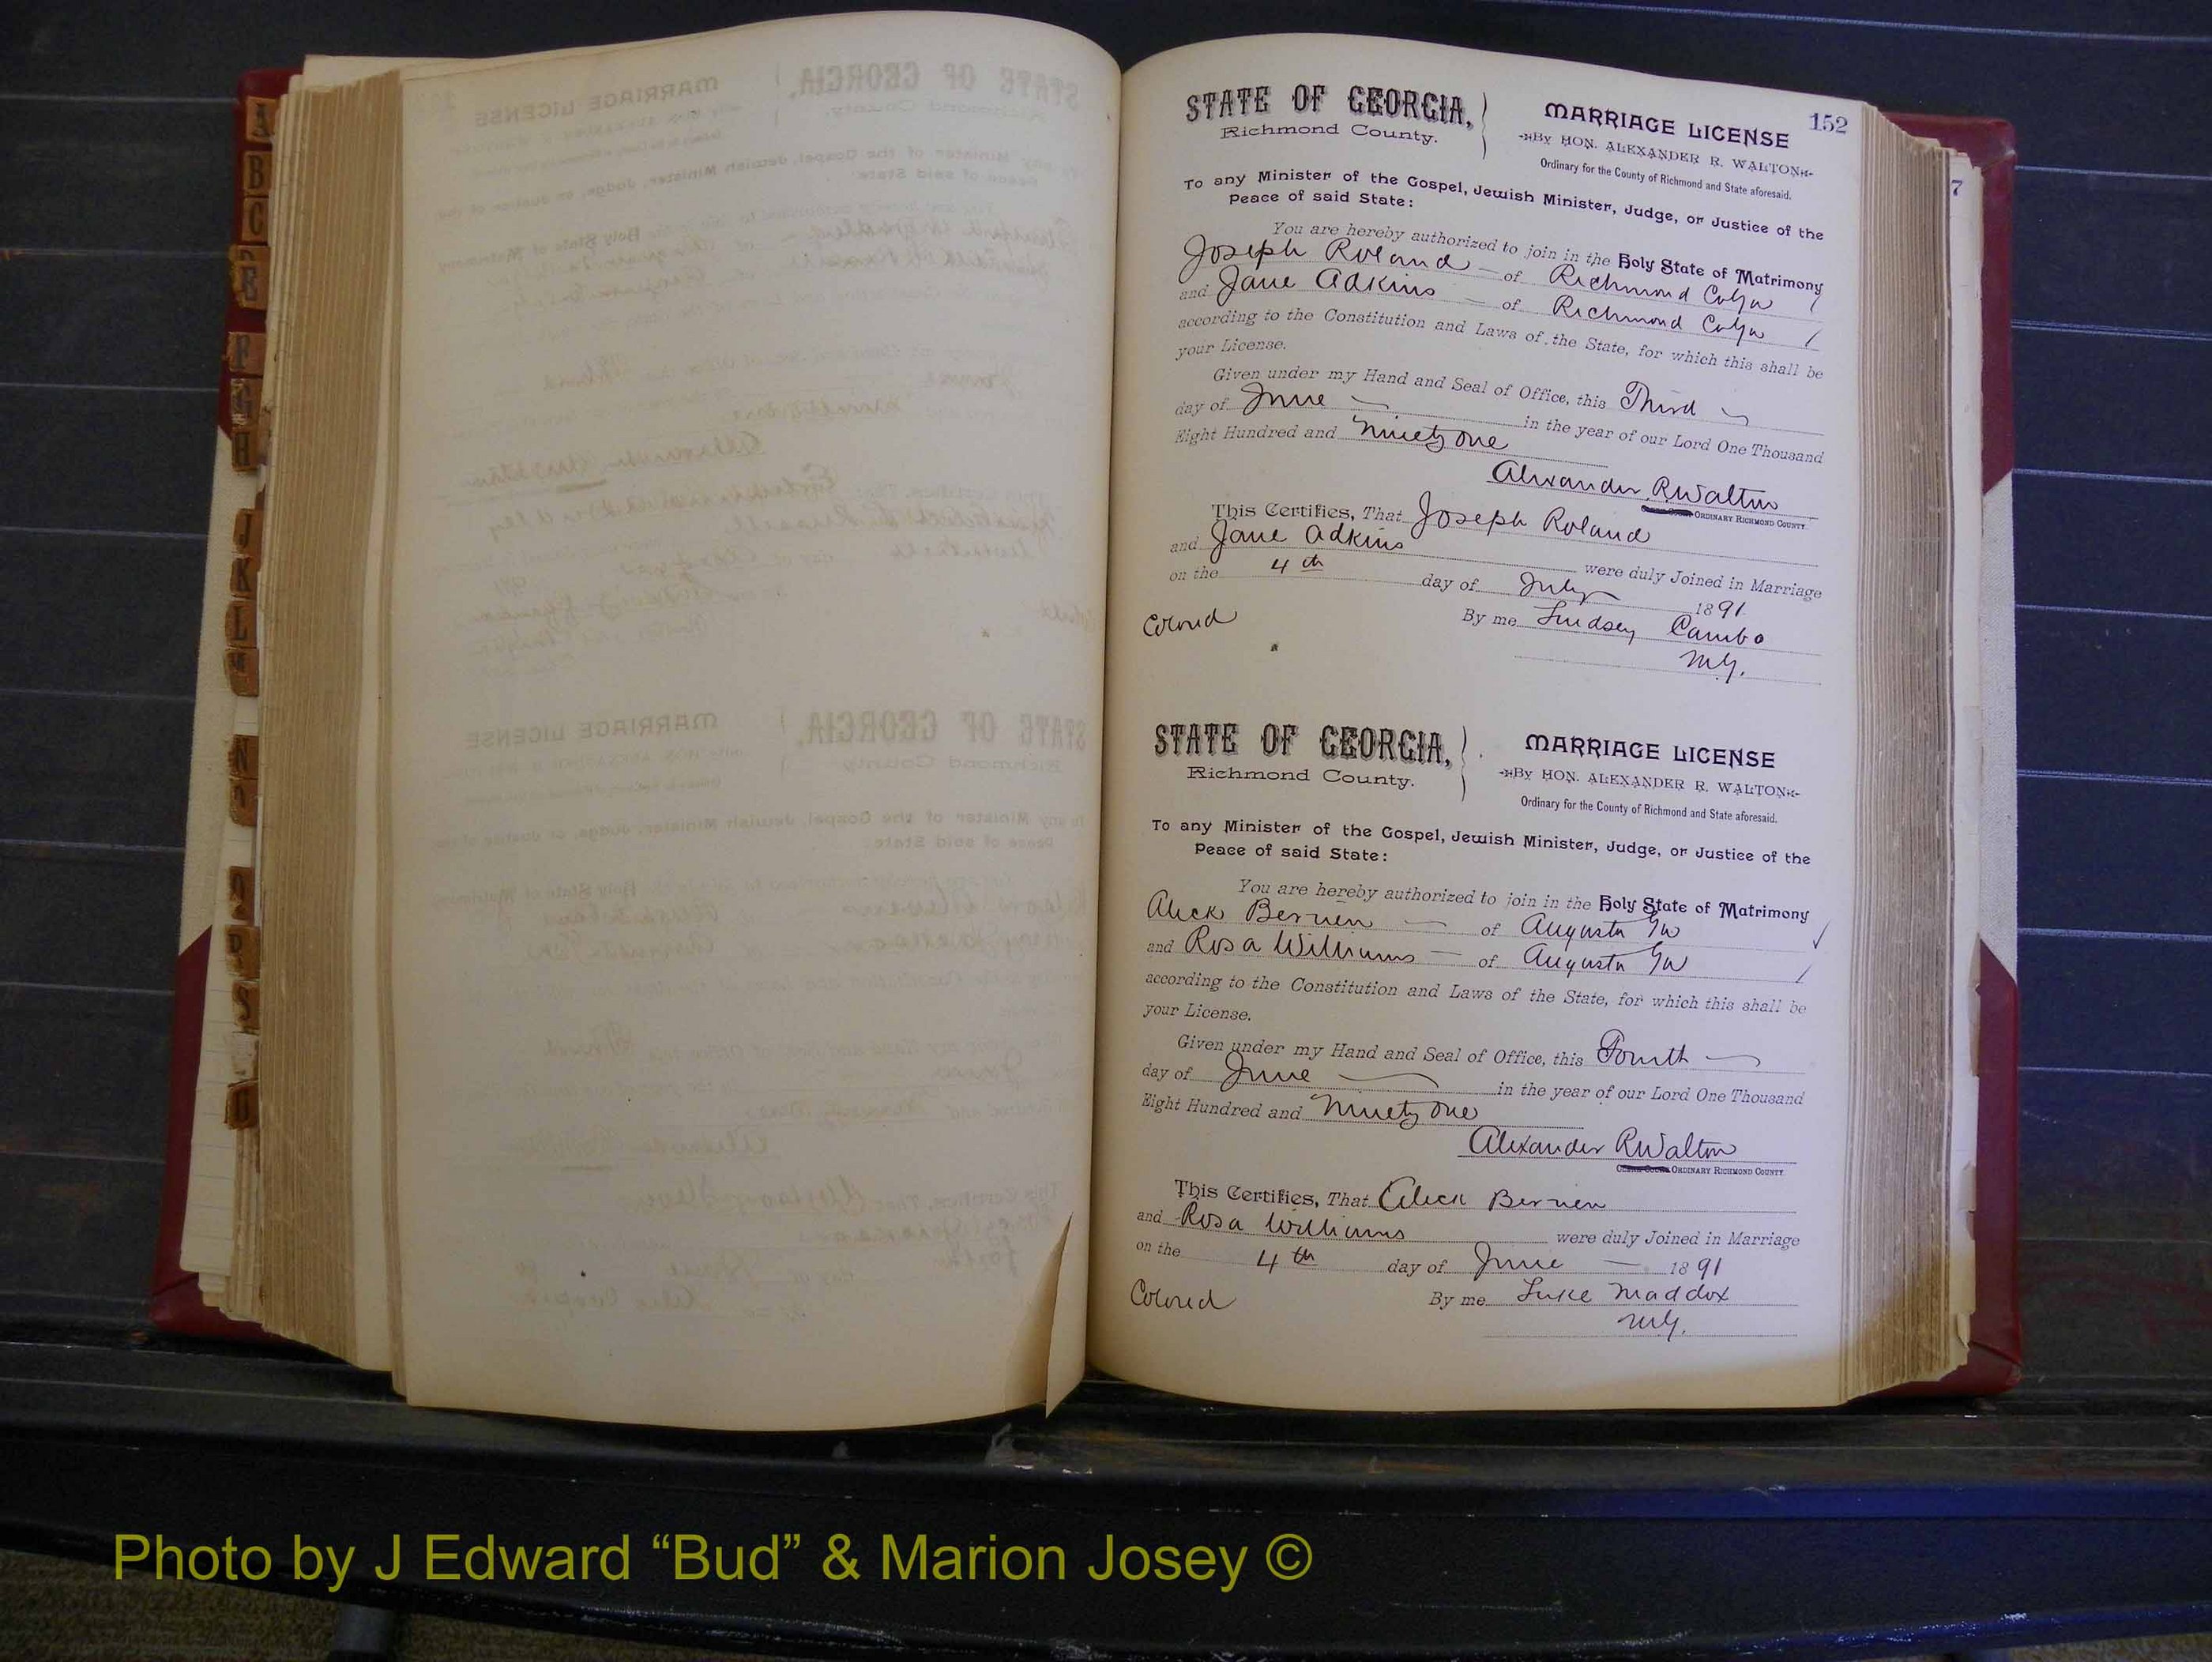 A
B
C
E
F
G
H
J
K
L
M
N
O
Q
R
S
152
7
STATE OF GEORGIA,
Richmond County.
MARRIAGE LICENSE
By HON. ALEXANDER R. WALTON
Ordinary for the County of Richmond and State aforesaid.
To any Minister of the Gospel, Jewish Minister, Judge, or Justice of the
Peace of said State:
You are hereby authorized to join in the Holy State of Matrimony
Joseph Roland of Richmond Co Ga
and Jane Adkins of Richmond Co Ga
according to the Constitution and Laws of the State, for which this shall be
your License.
Given under my Hand and Seal of Office, this Third
day of June in the year of our Lord One Thousand
Eight Hundred and Ninety one
Alexander R Walton
ORDINARY RICHMOND COUNTY
This Certifies, That Joseph Roland
and Jane Adkins were duly Joined in Marriage
on the 4th day of July 1891
Colored By me Lindsey Cambo
M.G.
STATE OF GEORGIA,
Richmond County.
MARRIAGE LICENSE
By HON. ALEXANDER R. WALTON
Ordinary for the County of Richmond and State aforesaid.
To any Minister of the Gospel, Jewish Minister, Judge, or Justice of the
Peace of said State:
You are hereby authorized to join in the Holy State of Matrimony
Aleck of Augusta Ga
and Rosa Williams of Augusta Ga
according to the Constitution and Laws of the State, for which this shall be
your License.
Given under my Hand and Seal of Office, this Fourth
day of June in the year of our Lord One Thousand
Eight Hundred and Ninety one
Alexander R Walton
ORDINARY RICHMOND COUNTY
This Certifies, That Aleck
and Rosa Williams were duly Joined in Marriage
on the 4th day of June 1891
Colored By me Luke Maddox
M.G.
Photo by J Edward “Bud” & Marion Josey ©